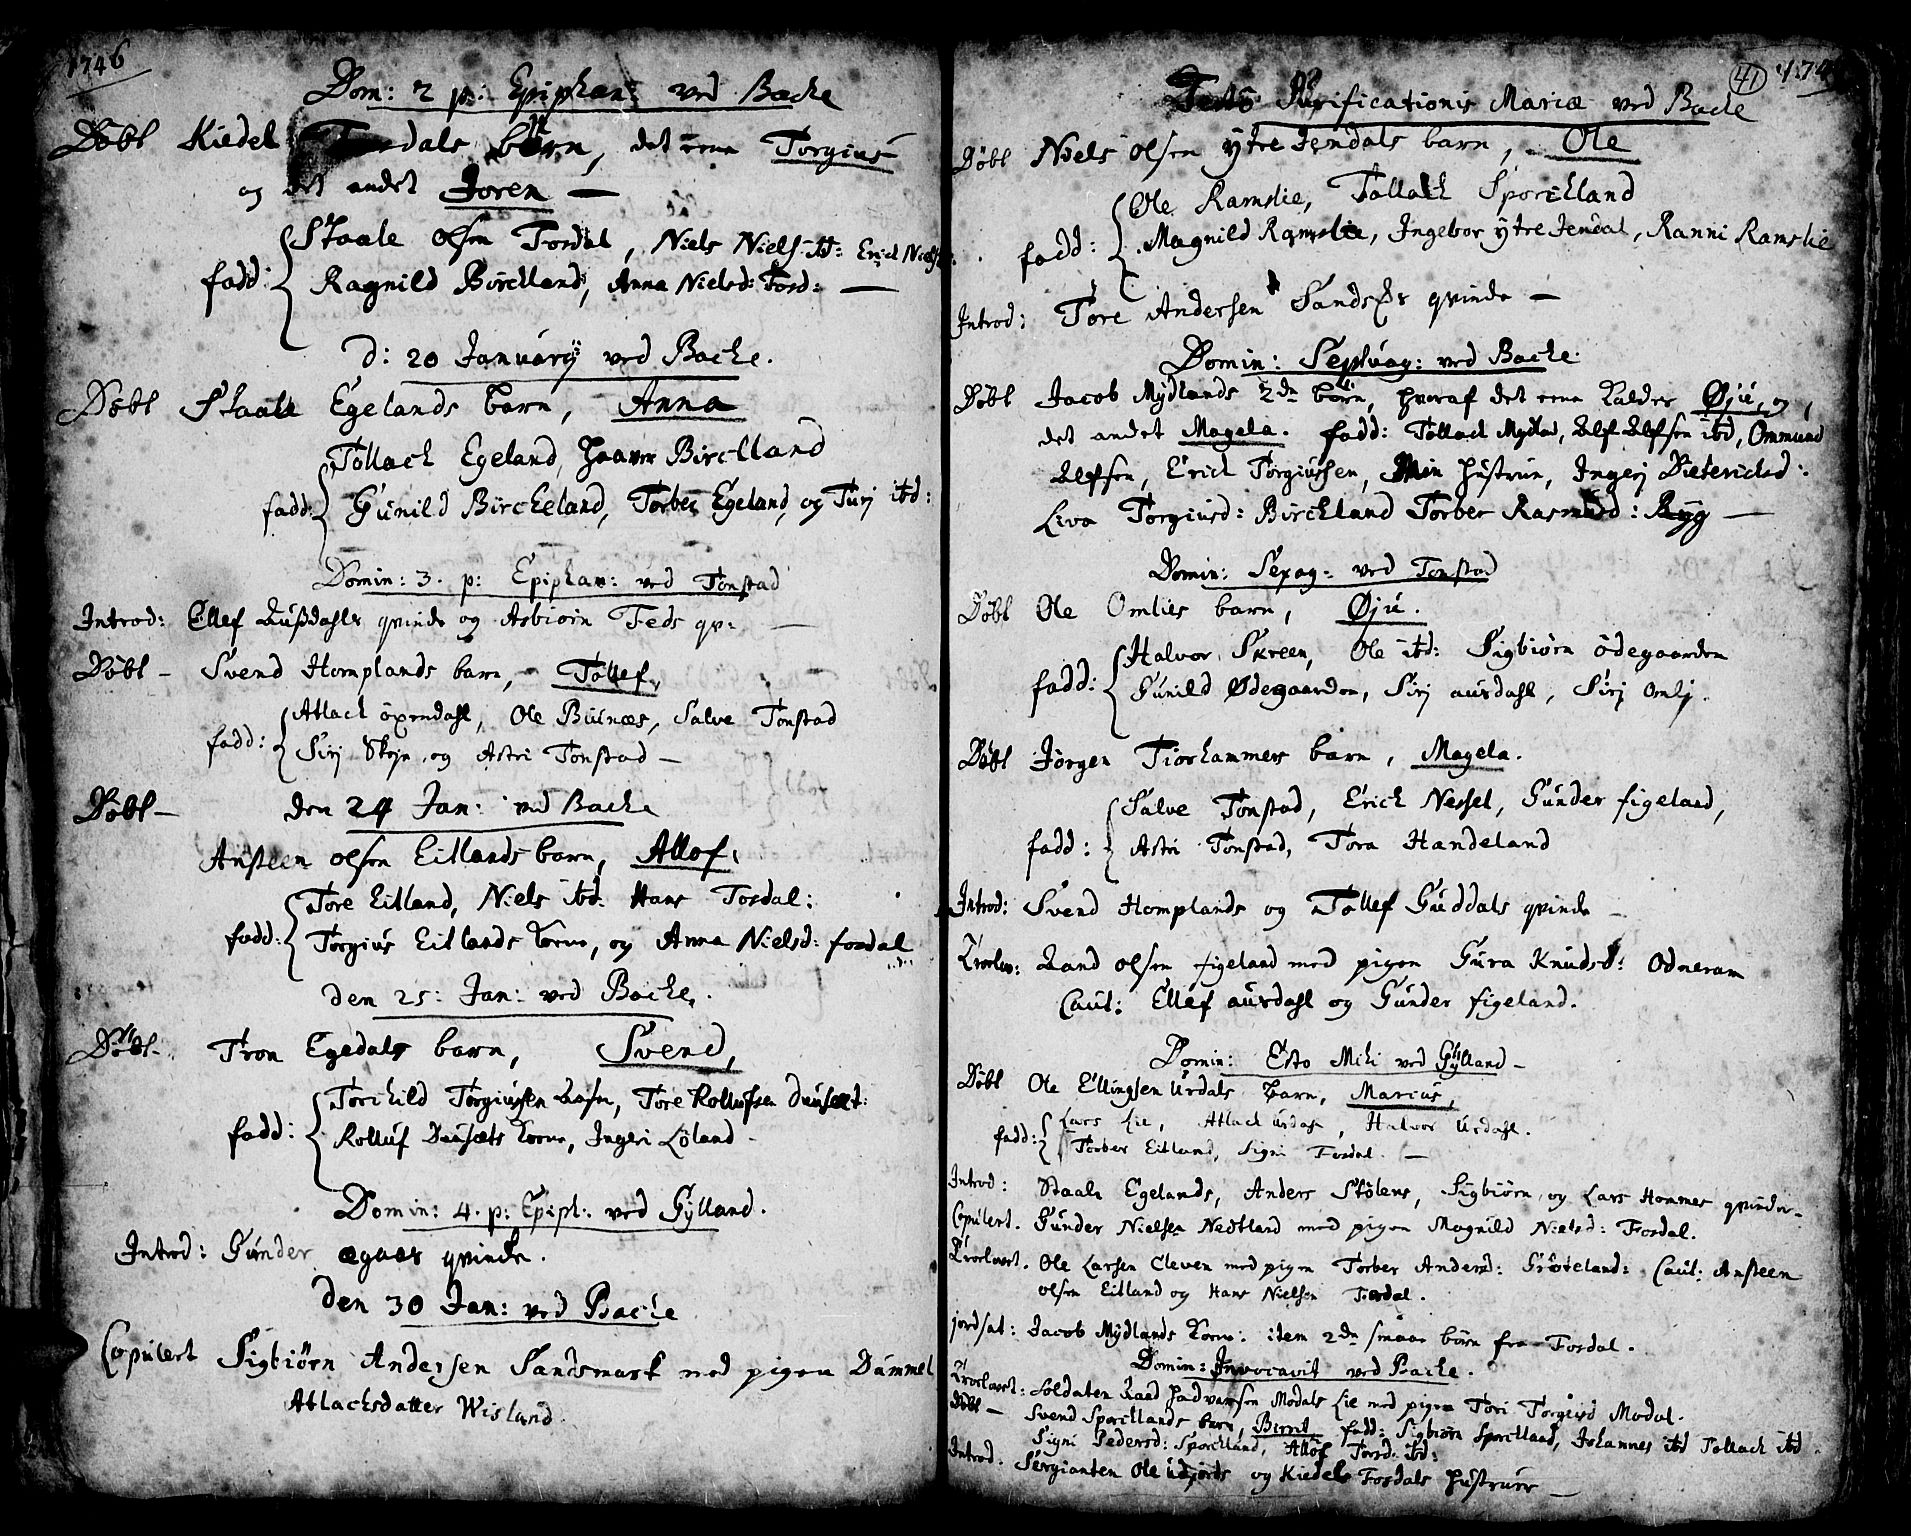 1746
Dom: 2 p: Epiphan: ved Bache
Döbt Kiedel Fosdals börn, det eene Torgius
og det andet Joren —
Staale Olsen Fosdal, Niels Niels: ibd: Erick Niels:
fadd: Ragnild Birckland, Anna Nielsd: Fosd: —
d: 20 Januarij ved Bache.
Döbt Staale Egelands barn, Anna
Tollach Egeland, Haaver Birckland
fadd: Gunild Birckeland, Torber Egeland, og Turj ibd:
Domin: 3. p: Epiphan: ved Tonstad
Introd: Ellef Lußdahls qvinde og Asbiörn Feds qv: —
Döbt – Svend Homplands barn, – Tollef.
Atlach öxendahl, Ole Büünæs, Salve Tonstad
fadd: Sirj Skoje, og Astri Tonstad —
Döbt – den 24 Jan: ved Bache
Ansteen Olsen Eitlands barn, Allof,
Tore Eitland, Niels ibd: Hans Fosdal:
fadd: Torgius Eitlands kone, og Anna Nielsd: fosdal
den 25: Jan: ved Bache.
Döbt – Tron Egedals barn, Svend,
Torkild Torgiussen, Tore Rollufsen Dunsæt:
fadd: Rolluf Dunsæts kone, Ingeri Löland –
Domin: 4. p: Epiph: ved Gylland.
Introd: Gunder ægaas qvinde.
den 30 Jan: ved Bache
Copulert Sigbiörn Andersen Sandsmark med pigen Dammel
Atlachsdatter Wisland.
41 174
Festo Purificationis Mariæ ved Bache
Döbt Niels Olsen ytre Jendals barn, – Ole
Ole Ramslie, Tallach Sporckland
fadd: Magnild Ramslie, Ingebor ytre Jendal, Ranni Ramslie
Introd: Tore Andersen qvinde —
Domin: Septuag: ved Bache.
Döbt Jacob Mydlands 2de börn, hvoraf det eene kaldes Øju, og
det andet Magela. fadd: Tollach Mydland, Ulf Ulfsen ibd, Ommund
Ulfsen, Erich Torgiussen, Min hustrue, Ingerj Dieterichsd:
Liva Torgiusd: Birckland Torber Rasmusd: Ryg —
Domin: Sexag: ved Tonstad
Döbt Ole Omlies barn, Øju.
Halvor Skreen, Ole ibd: Sigbiörn ödegaarden
fadd: Gunild Ødegaarden, Sirj aurdahl, Sirj Omlj.
Döbt Jörgen Tiorhammers barn, Magela.
Salve Tonstad, Erich Nessel, Gunder figeland,
fadd: Astri Tonstad, Tora Handeland
Introd: Svend Homplands og Tollef Guddals qvinde —
Trolov: Rand Olsen figeland med pigen Gura Knudsd: Odneram
Caut: Ellef aurdahl og Gunder figeland.
Domin: Esto Mihi ved Gylland –
Döbt Ole Ellingsen Urdals barn, Marius,
Lars Lie, Atlach Urdahl, Halvor Urdahl.
fadd: Torber Eitland, Signi Fosdal. —
Introd: Staale Egelands, Anders Stölens, Sigbiörn og Lars Hommes qvinder –
Copulert. Gunder Nielsen Nedtland med pigen Magnild Nielsd: Fosdal.
Trolovet. Ole Larsen Cleven med pigen Torber Andersd: Gröteland: Caut: Ansteen
Olsen Eitland og Hans Nielsen Fosdal.
jordsat: Jacob Mydlands kone: item 2de smaae börn fra Fosdal.
Domin: Invocavit ved Bache.
Trolovet: Soldaten Raad Hadvarsen Modals Lie med pigen Tori Torgiusd Modal.
Döbt – Svend Sporcklands barn, Bernt, fadd: Sigbiörn Sporckland, Johannes ibd Tollach ibd.
Signi Pedersd: Sporckland, Allof Torsd: ibd:
Introd. Sergianten Ole Udjords og Kiedels Fosdals hustruer —